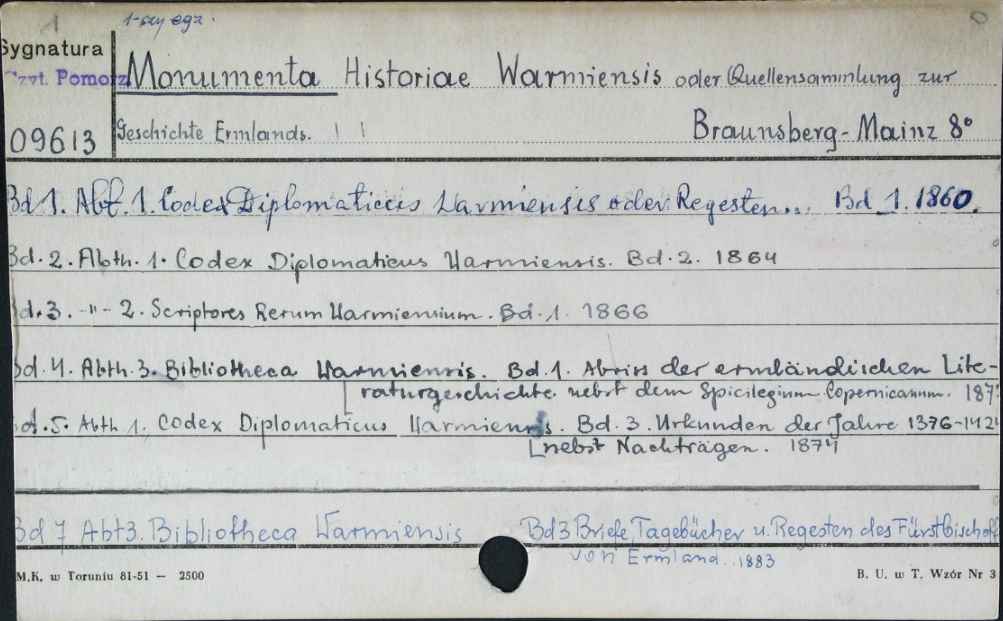 1
1-szy egz.
0
Sygnatura
Czyt. Pomorz
Monumenta Historiae Warmiensis oder Quellensammlung zur
09613
Geschichte Ermlands.
Braunsberg-Mainz 8°
Bd 1. Abt. 1. Codex Diplomaticus Warmiensis oder Regesten... Bd 1. 1860.
Bd. 2. Abth. 1. Codex Diplomaticus Warmiensis. Bd. 2. 1864
Bd. 3. -"- 2. Scriptores Rerum Warmiensium. Bd. 1. 1866
Bd. 4. Abth. 3. Bibliotheca Warmiensis. Bd. 1. Abriss der ermländischen Lite-
raturgeschichte nebst dem Spicilegium Copernicanum. 187
Bd. 5. Abth 1. Codex Diplomaticus Warmiensis. Bd. 3. Urkunden der Jahre 1376-1424
nebst Nachträgen. 1874
Bd 7 Abt 3. Bibliotheca Warmiensis Bd 3 Briefe, Tagebücher u. Regesten des Fürstbischofs
von Ermland. . 1883
M.K. w Toruniu 81-51 — 2500
B. U. w T. Wzór Nr 3